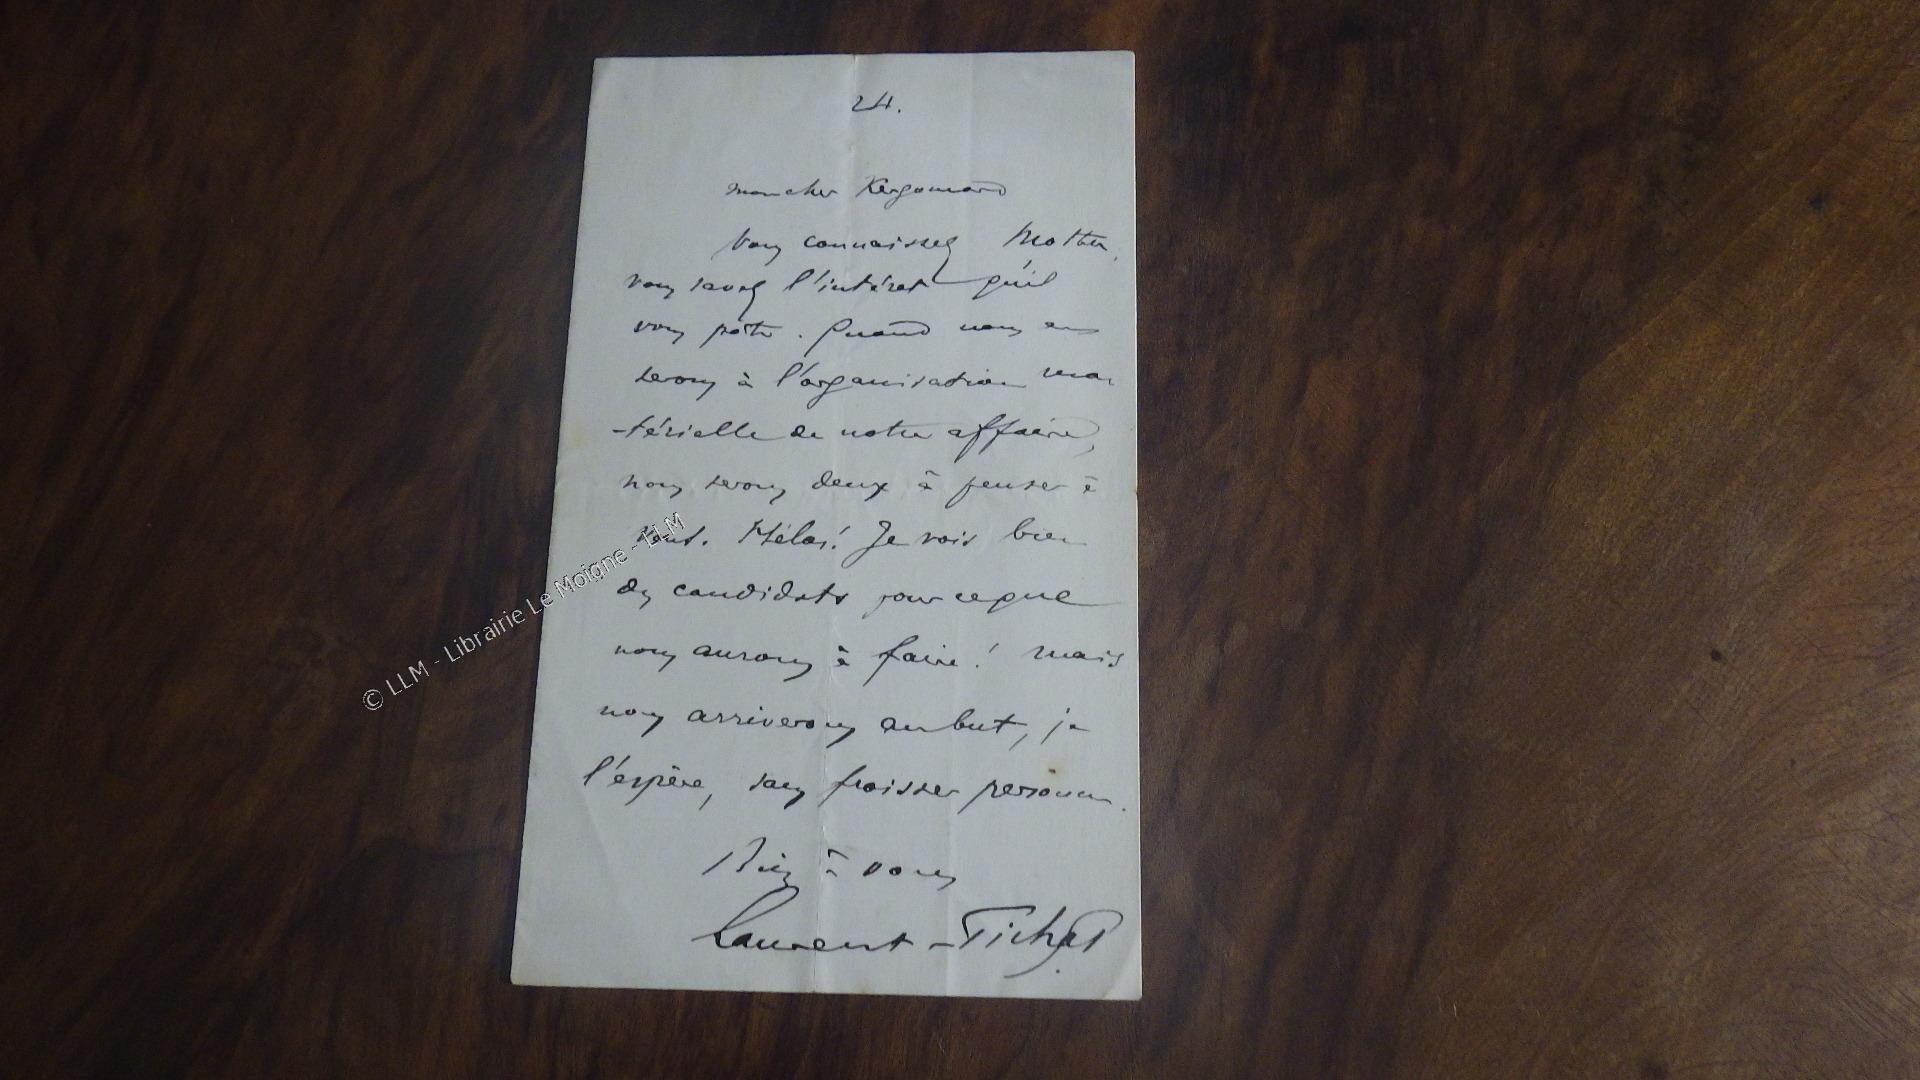 24.
mon cher Kergomard
Vous connaissez Mottu.
vous savez l'intéret qu'il
vous porte. Quand nous en
serons à l'organisation ma
-térielle de notre affaire,
nous serons deux à penser à
vous. Hélas! Je vois bien
des candidats pour ce que
nous aurons à faire! mais
nous arriverons au but, je
l'espère, sans froisser personne.
Bien à vous
Laurent-Pichat
© LLM - Librairie Le Moigne - LLM